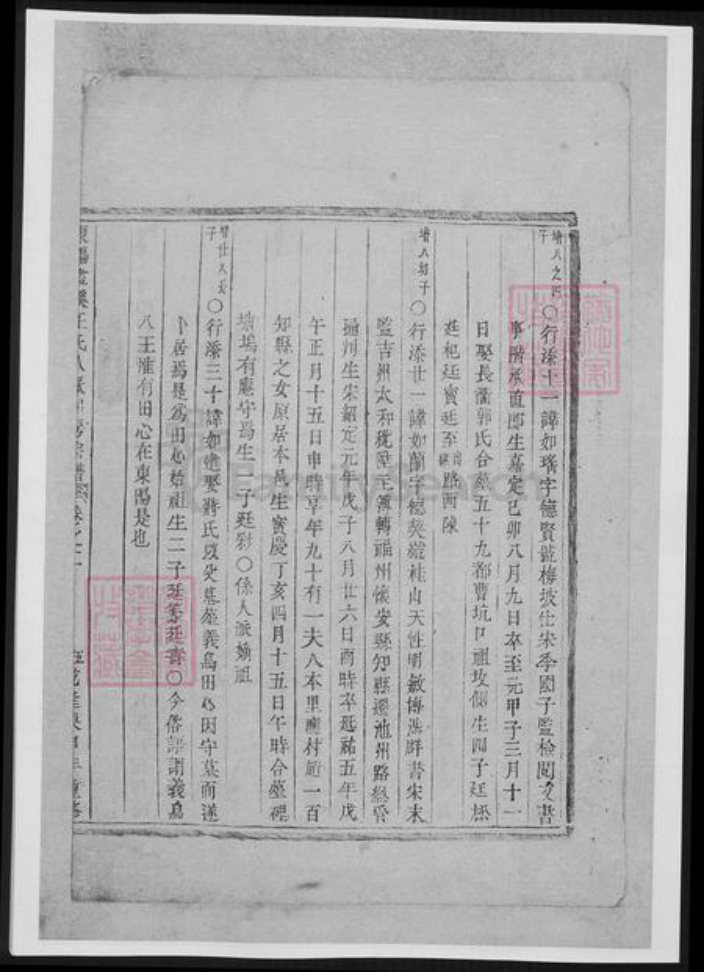 增八之四子○行添十一諱如瑤字德賢號梅坡仕宋季國子監檢閱文書
事階承直郎生嘉定己卯八月九日卒至元甲子三月十一
日娶長衢郭氏合塟五十九都曹坑口祖坟側生四子廷松
廷杞廷實廷至 路西陳
增八幼子○行添廿一諱如蘭字德契號桂山天性明敏博洪群書宋末
監吉州太和稅陞主簿轉福州懷安縣知縣遷池州路
通判生宋紹定元年戊子八月廿六日酉時卒延祐五年戊
午正月十五日申時享年九十有一夫人本里應村趙一百
知縣之女原居本邑生寶慶丁亥四月十五日午時合塟裡
塘塢有廳守焉生一子廷彩○係人派嫡祖
子○行添三十諱如建娶蔣氏歿父墓塟義烏田心因守墓而遂
卜居焉是為田心始祖生二子廷 廷壽○今俗諺謂義烏
八王惟有田心在東陽是也
王氏 宗譜 卷之